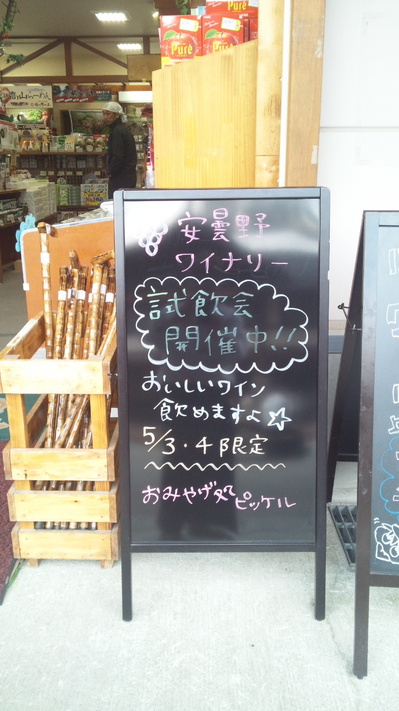 Pure
Pure
安曇野
ワイナリー
試飲会
開催中!!
おいしいワイン
飲めますよ☆
5/3・4限定
おみやげ処
ピッケル